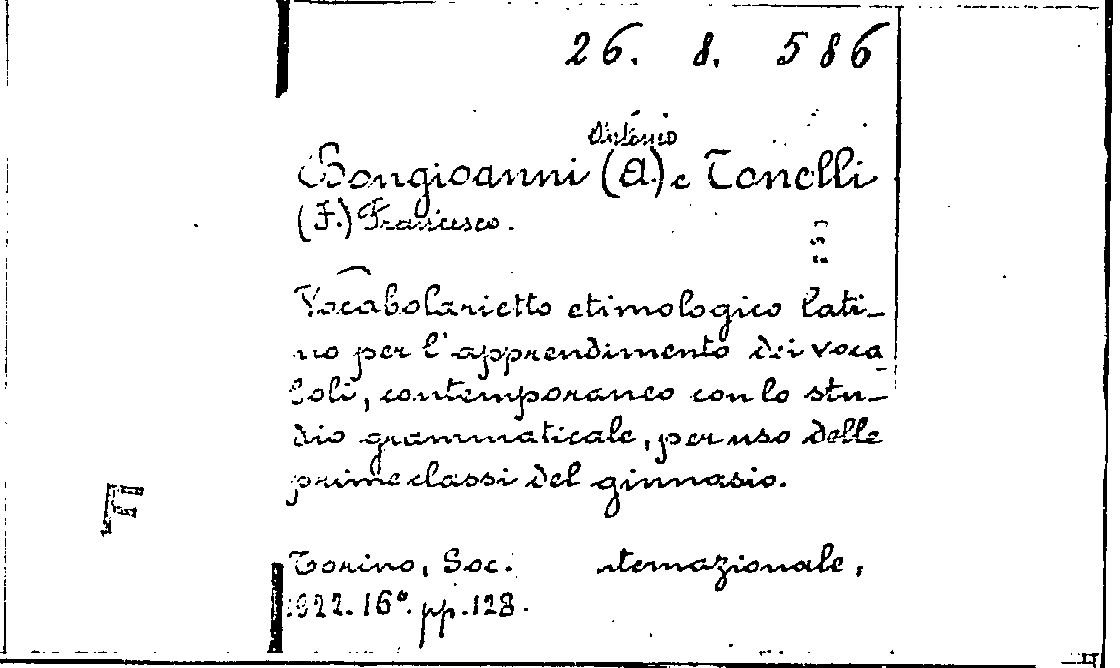 26. 8. 586
Antonio
Bongioanni (A.) e Tonelli
(F.) Francesco.
Vocabolarietto etimologico lati-
no per l'apprendimento dei voca-
boli, contemporaneo con lo stu-
dio grammaticale, per uso delle
prime classi del ginnasio.
F
Torino, Soc. nternazionale,
1922. 16º. pp. 128.